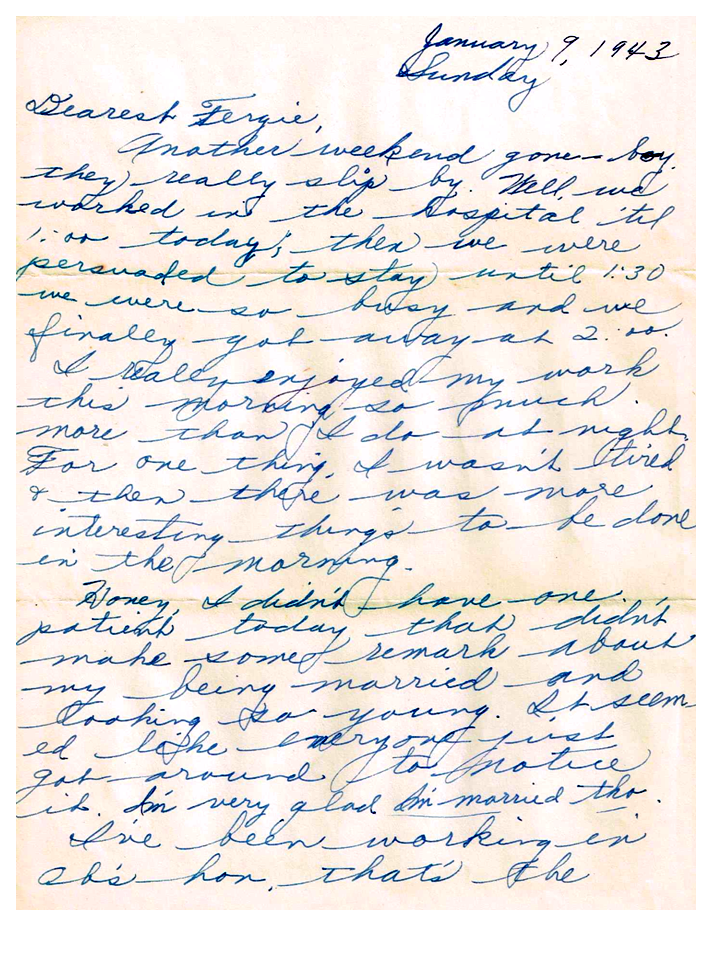 January 9, 1943
Sunday
Dearest Fergie,
Another weekend gone - boy
they really slip by. Well, we
worked in the hospital 'til
1:00 today; then we were
persuaded to stay until 1:30
we were so busy and we
finally got away at 2:00.
I really enjoyed my work
this morning so much
more than I do at night.
For one thing, I wasn't tired
& then there was more
interesting things to be done
in the morning.
Honey, I didn't have one
patient today that didn't
make some remark about
my being married and
looking so young. It seem-
ed like everyone just
got around to notice
it. I'm very glad I'm married tho.
I've been working in
ob's hon, that's the